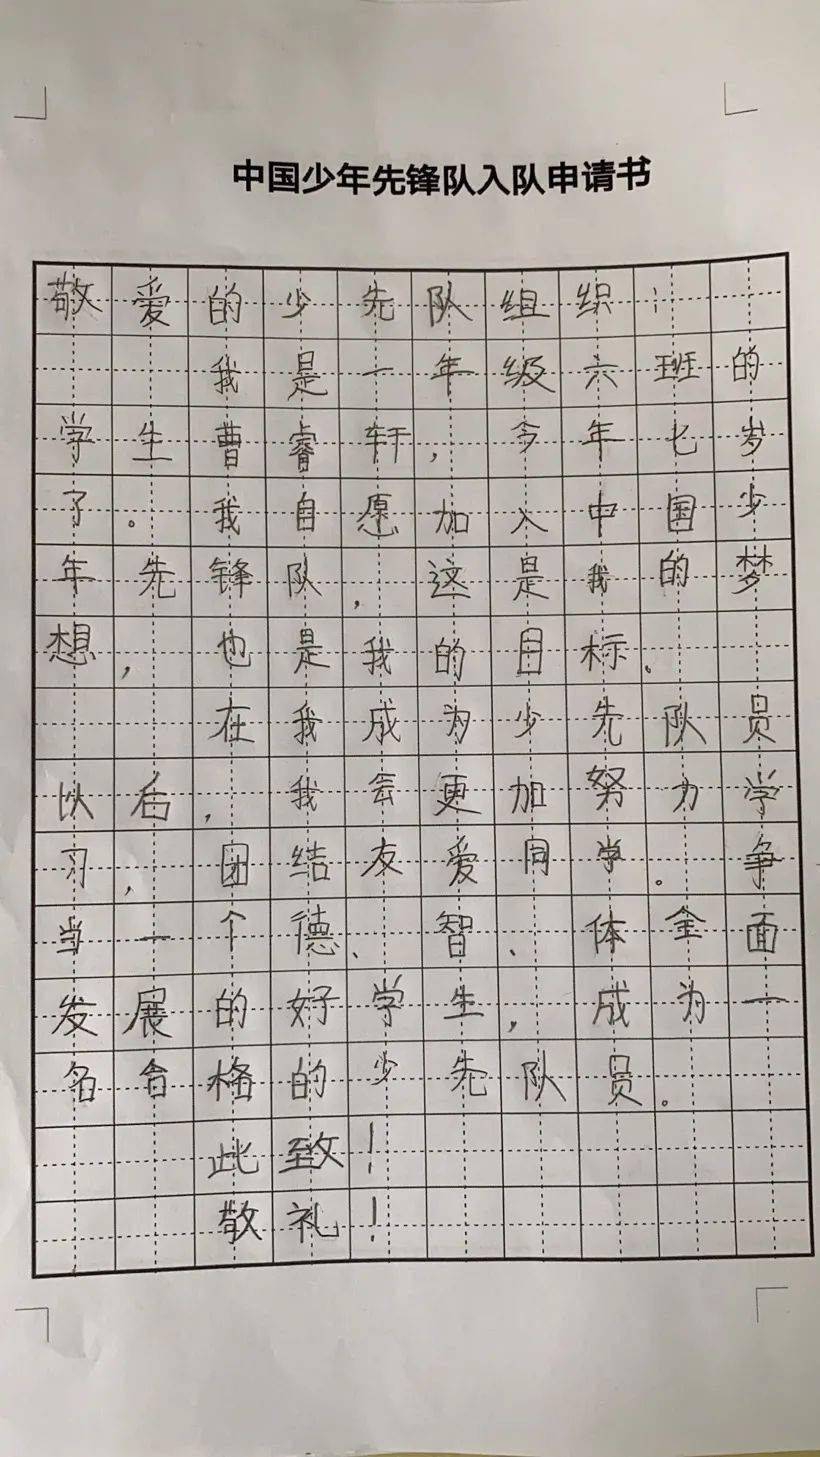 中国少年先锋队入队申请书
敬爱的少先队组织:
我是一年级六班的
学生曹睿轩,今年七岁
了。我自愿加入中国少
年先锋队,这是我的梦
想,也是我的目标。
在我成为少先队员
以后,我会更加努力学
习,团结友爱同学。争
当一个德、智、体全面
发展的好学生,成为一
名合格的少先队员。
此致!
敬礼!